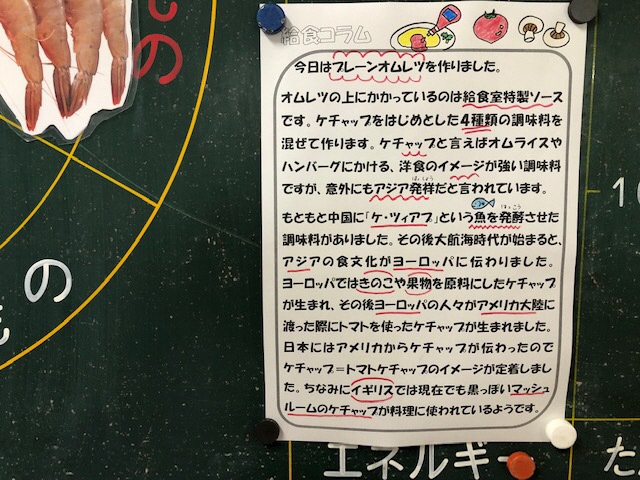 給食コラム
今日はプレーンオムレツを作りました。
オムレツの上にかかっているのは給食室特製ソース
です。ケチャップをはじめとした4種類の調味料を
混ぜて作ります。ケチャップと言えばオムライスや
ハンバーグにかける、洋食のイメージが強い調味料
ですが、意外にもアジア発祥だと言われています。
はっしょう
もともと中国に「ケ・ツィアプ」という魚を発酵させた
はっこう
調味料がありました。その後大航海時代が始まると、
アジアの食文化がヨーロッパに伝わりました。
ヨーロッパではきのこや果物を原料にしたケチャップ
が生まれ、その後ヨーロッパの人々がアメリカ大陸に
渡った際にトマトを使ったケチャップが生まれました。
日本にはアメリカからケチャップが伝わったので
ケチャップ=トマトケチャップのイメージが定着しまし
た。ちなみにイギリスでは現在でも黒っぽいマッシュ
ルームのケチャップが料理に使われているようです。
の
の
エネルギー
た